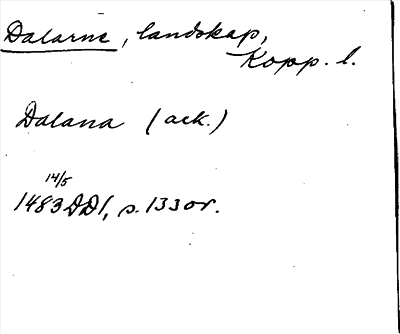 Dalarne, landskap,
Kopp. l.
Dalana (ack.)
14/5
1483 DD1, s. 133 or.